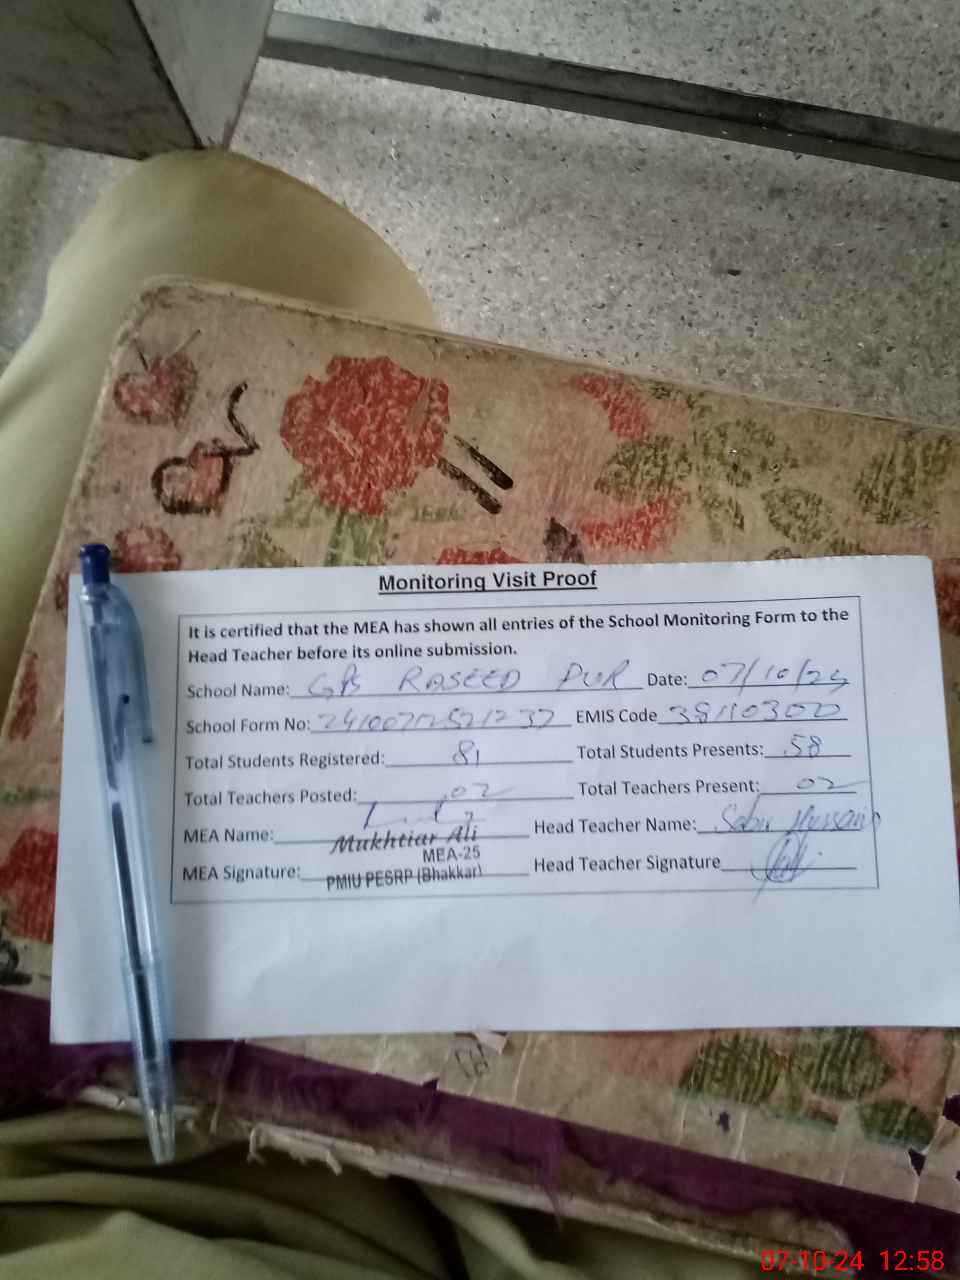 Monitoring Visit Proof
It is certified that the MEA has shown all entries of the School Monitoring Form to the
Head Teacher before its online submission.
School Name: GPS RASEED PUR Date: 07/10/24
School Form No: EMIS Code 38110300
Total Students Registered: 81 Total Students Presents: 58
Total Teachers Posted: 02 Total Teachers Present: 02
MEA Name: Mukhtiar Ali Head Teacher Name: Sabir Hussain
MEA-25
MEA Signature: PMIU PESRP (Bhakkar) Head Teacher Signature
07-10-24 12:58